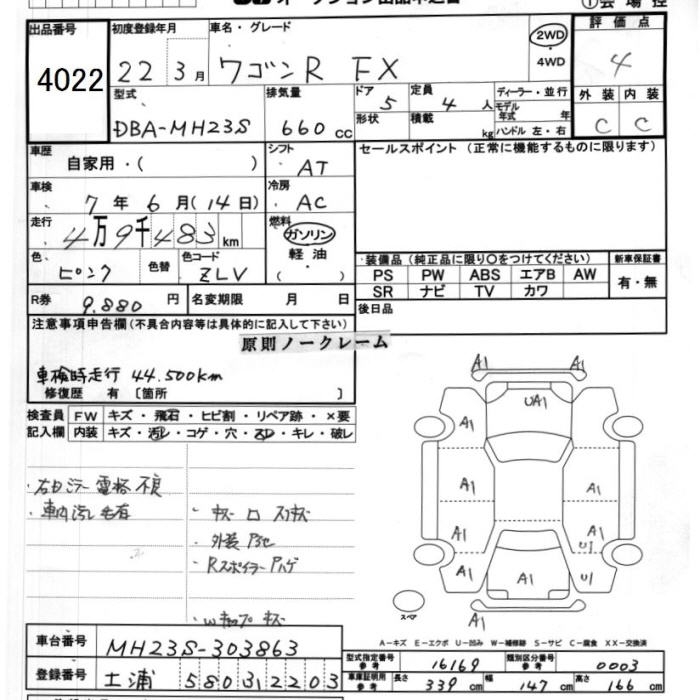 出品番号 初度登録年月 車名・グレード 2WD 評価点
4022 22年3月 ワゴンR FX ・4WD 4
型式 排気量 ドア 定員 ディーラー・並行 外装 内装
DBA-MH23S 660cc 5 4人 モデル年式 年 C C
形状 積載 kg ハンドル 左・右
車歴 シフト セールスポイント (正常に機能するものに限ります)
自家用・( ) AT
車検 冷房
7年6月(14日) AC
走行 燃料
4万9千483km ガソリン
色 色替 色コード 軽油
ピンク ZLV ( )
装備品 (純正品に限り〇をつけてください) 新車保証書
PS PW ABS エアB AW 有・無
SR ナビ TV カワ
R券 9,880円 名変期限 月 日 後日品
注意事項申告欄 (不具合内容等は具体的に記入して下さい)
原則ノークレーム
車検時走行 44,500km
修復歴 有 〔箇所 〕
検査員 FW キズ・飛石・ヒビ割・リペア跡・×要
記入欄 内装 キズ・汚レ・コゲ・穴・スレ・キレ・破レ
A1 A1
UA1
A1
A1 A1
A1 A1
U1
A1 A1 U1
A1
・右ドアミラー電格不良
・車内汚レ 毛有
・キズ ロ スリキズ
・外装
・Rスポイラー Pハゲ
スペア
A-キズ E-エクボ U-凹み W-補修跡 S-サビ C-腐食 XX-交換済
車台番号 MH23S-303863
型式指定番号 参考 16169 類別区分番号 参考 0003
登録番号 土浦 580 3 2203
車庫証明用 参考 長さ 339cm 幅 147cm 高さ 166cm